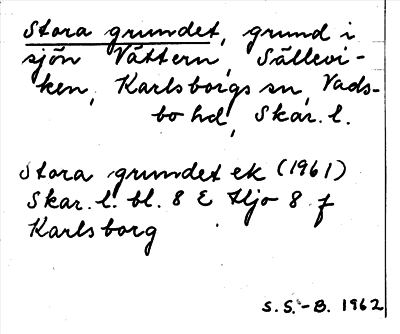 Stora grundet, grund i
sjön Vättern, Sällevi-
ken, Karlsborgs sn, Vads-
bo hd, Skar. l.
Stora grundet ek (1961)
Skar. l. bl. 8 E Hjo 8 f
Karlsborg
S. S.-B. 1962